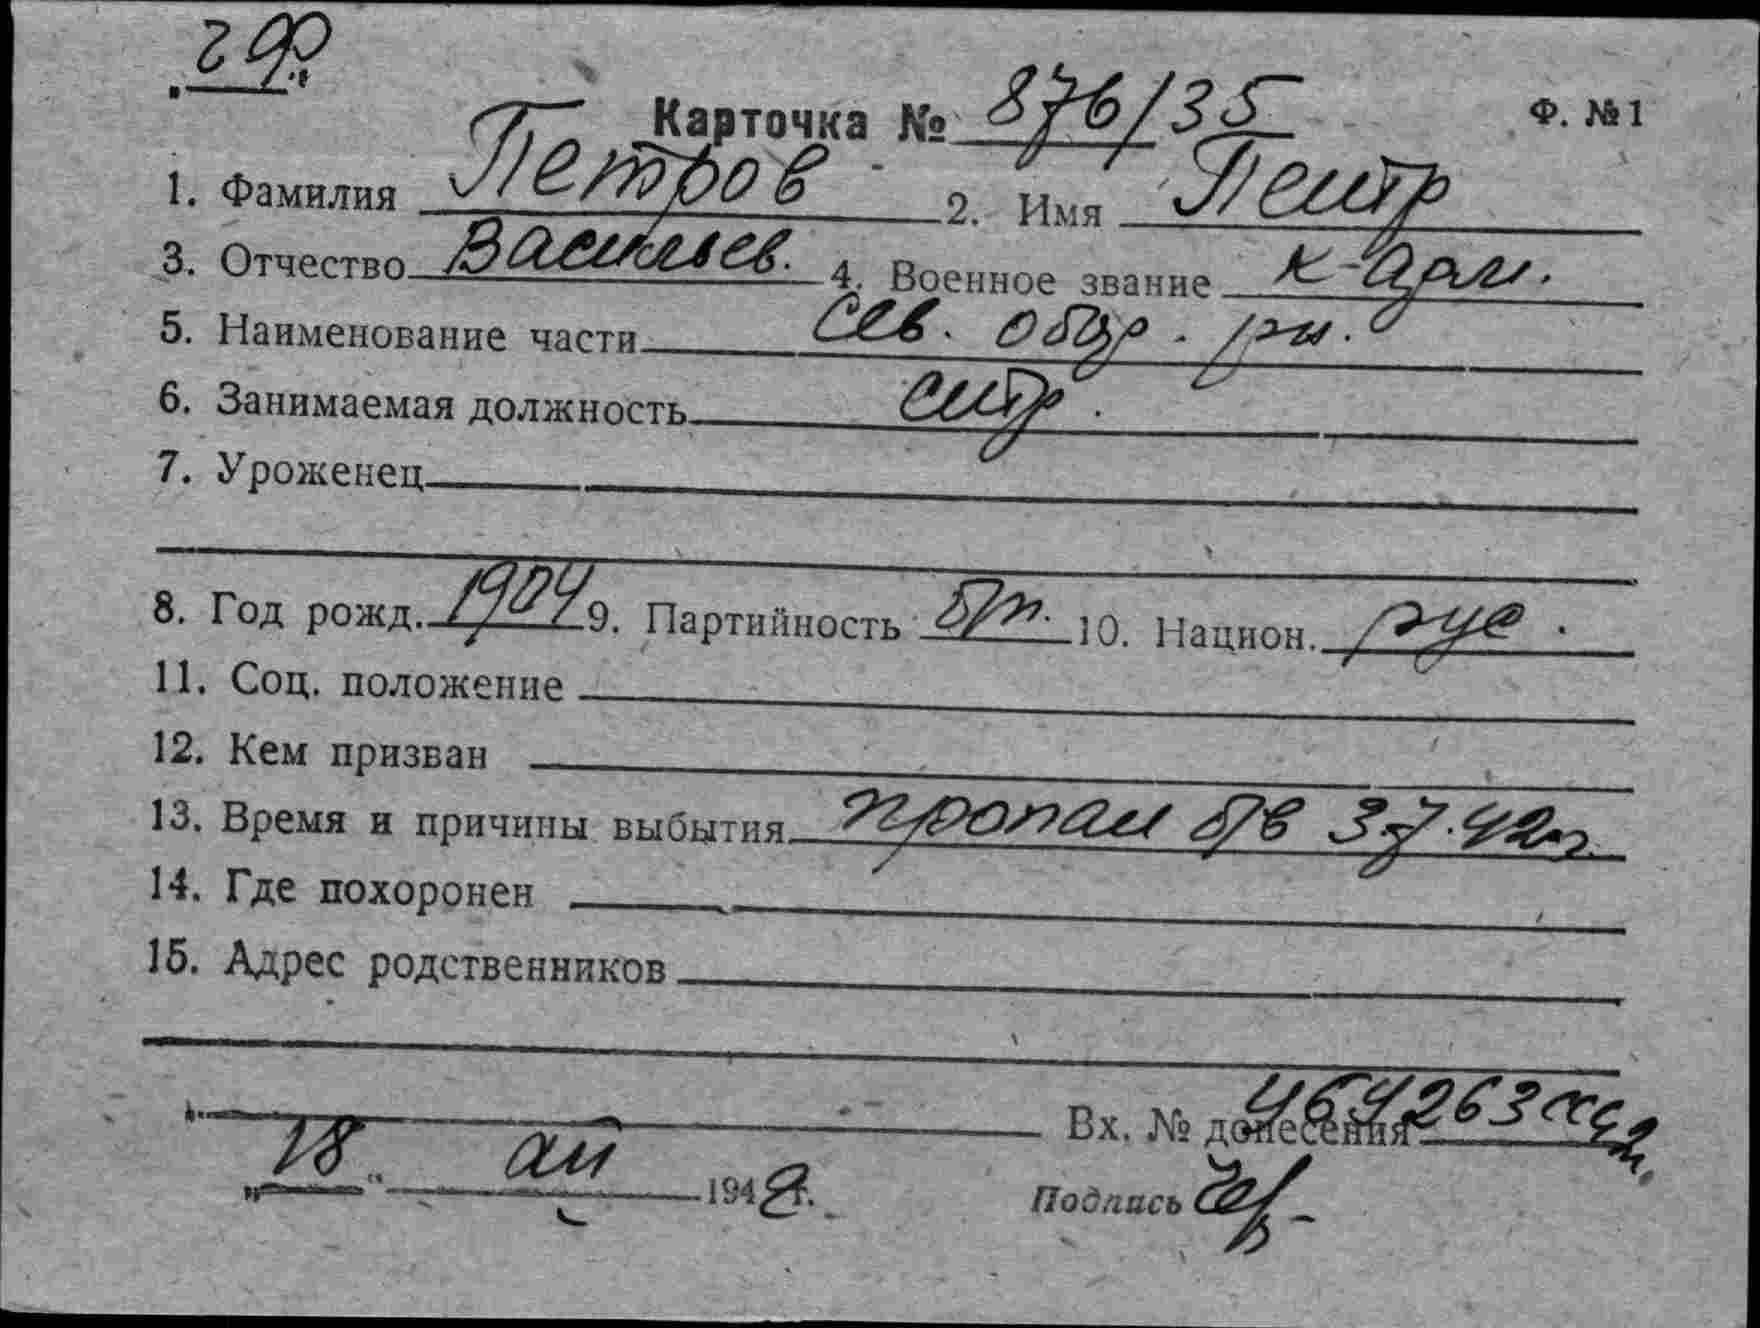 Карточка № 876/35 Ф. № 1
1. Фамилия Петров 2. Имя Петр
3. Отчество Васильев. 4. Военное звание к-арм.
5. Наименование части Сев. обор. рн.
6. Занимаемая должность стр.
7. Уроженец
8. Год рожд. 1904 9. Партийность б/п. 10. Национ. рус.
11. Соц. положение
12. Кем призван
13. Время и причины выбытия пропал б/в 3.7.42г.
14. Где похоронен
15. Адрес родственников
Вх. № донесения
„18“ 194 г. Подпись